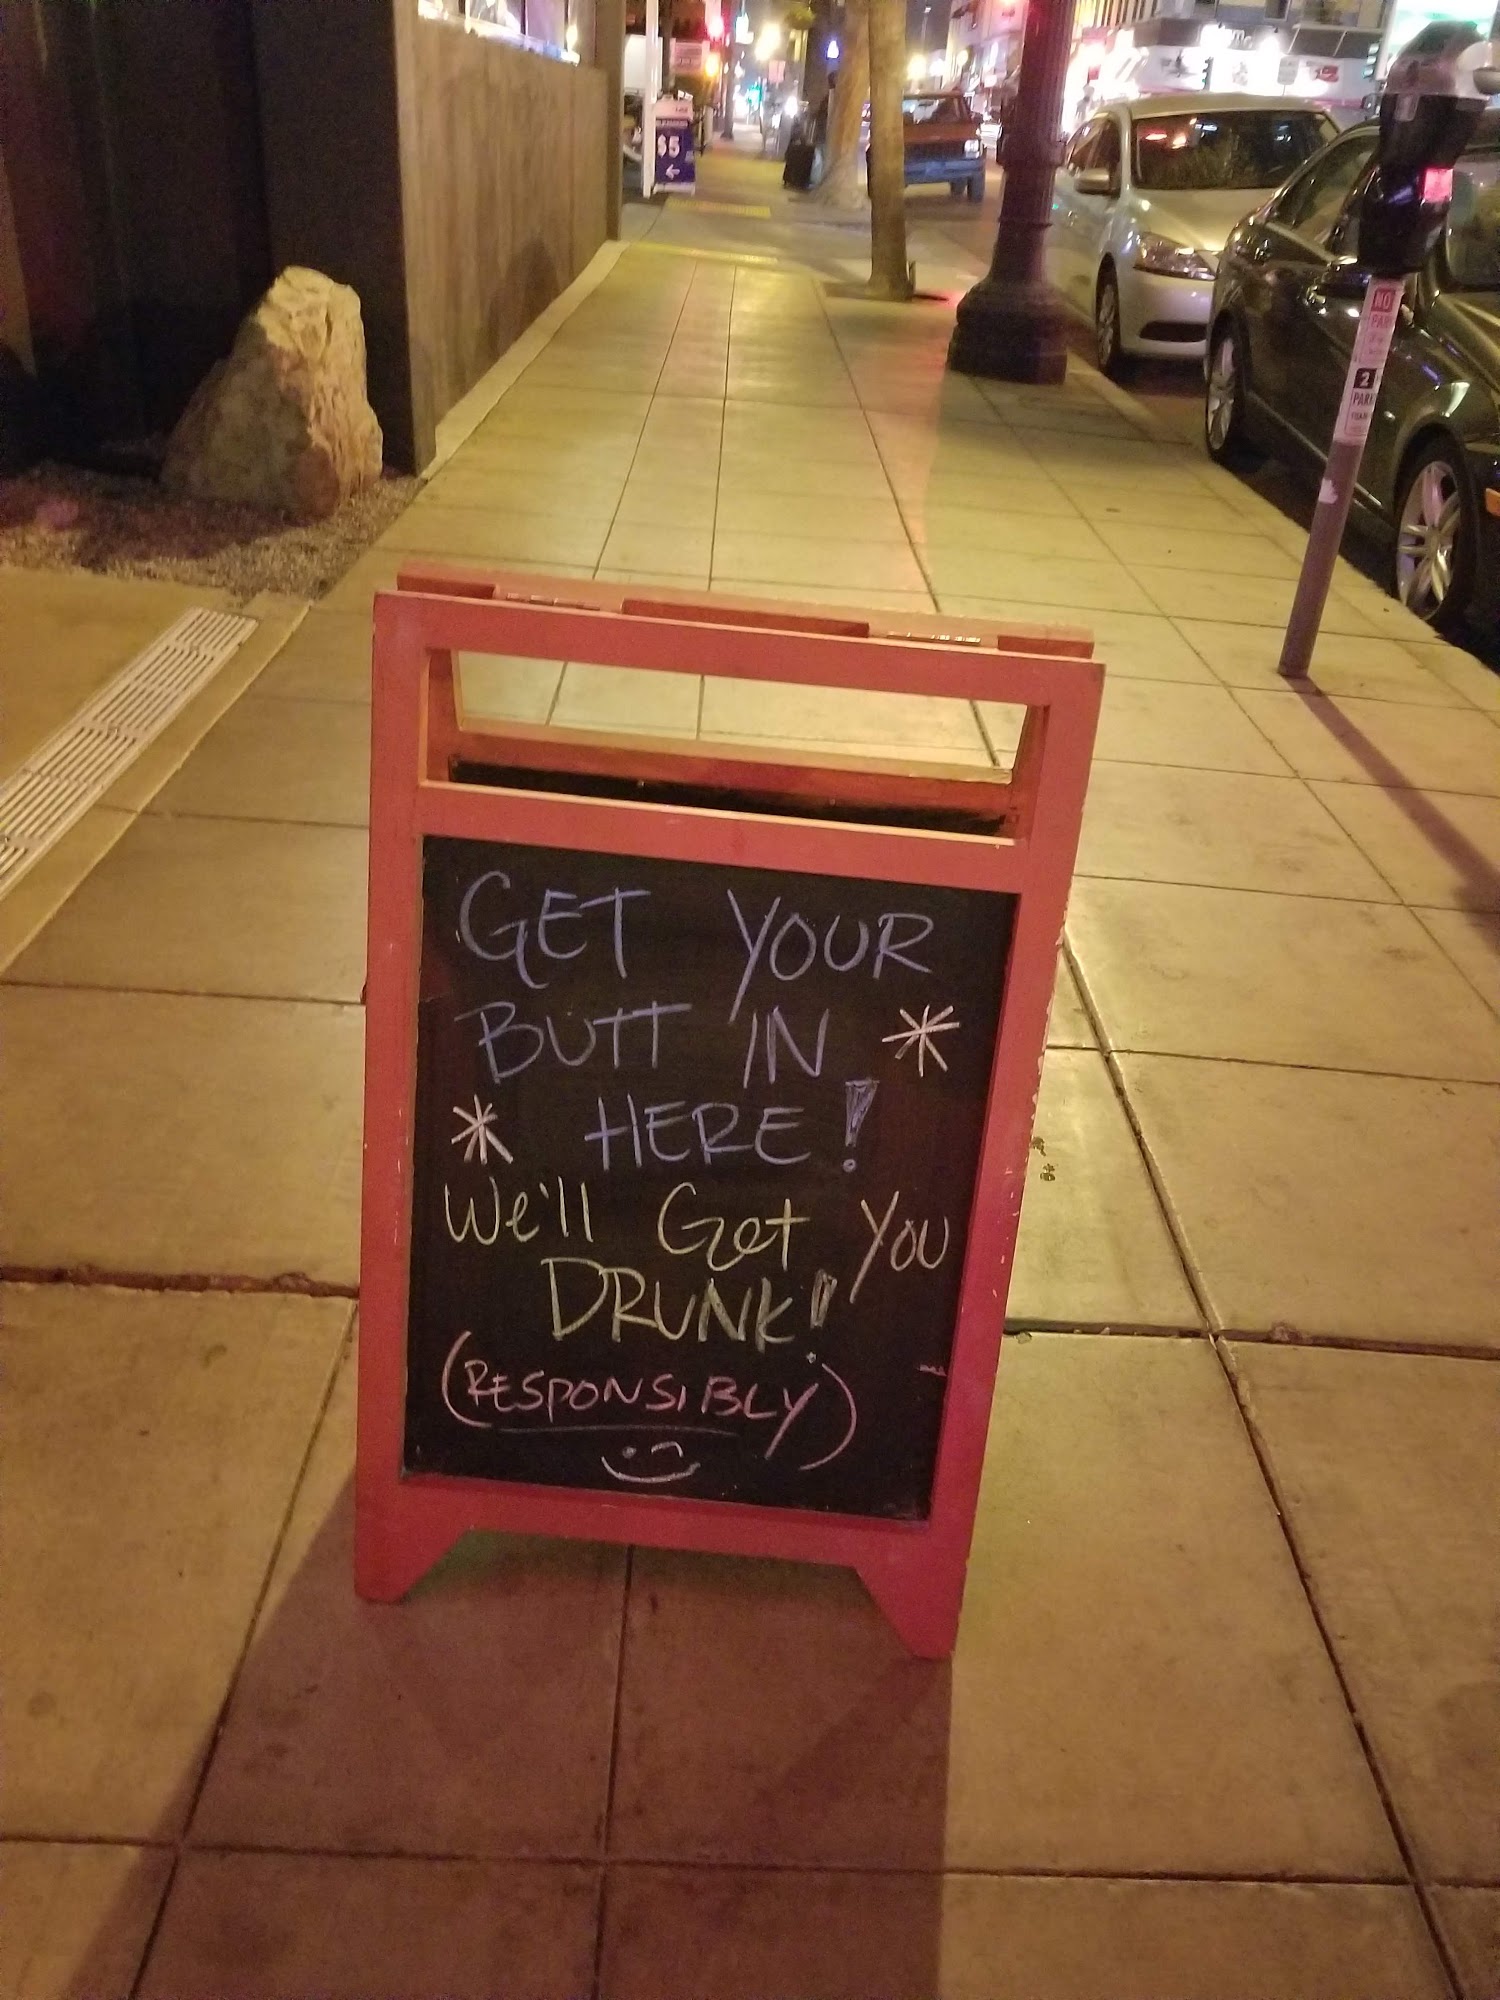 $5
NO
PARK
2
PARK
GET YOUR
BUTT IN *
* HERE!
We'll Get You
DRUNK!
(RESPONSIBLY)